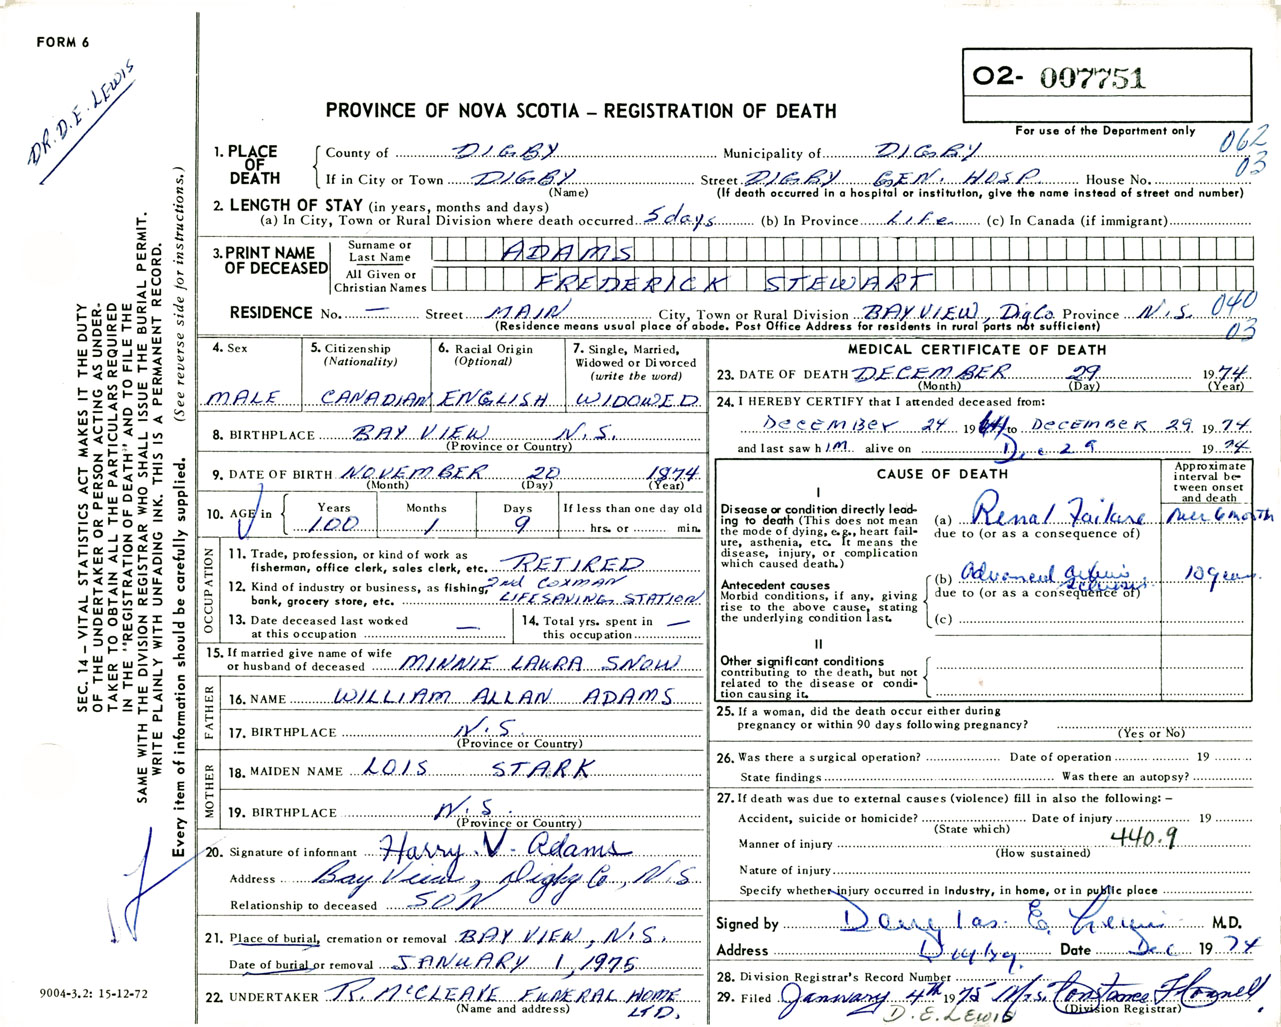 FORM 6
DR. D. E. LEWIS
O2- 007751
PROVINCE OF NOVA SCOTIA – REGISTRATION OF DEATH
For use of the Department only
062
03
1. PLACE OF DEATH
County of DIGBY Municipality of DIGBY
If in City or Town DIGBY Street DIGBY GEN. HOSP House No.
(Name) (If death occurred in a hospital or institution, give the name instead of street and number)
2. LENGTH OF STAY (in years, months and days)
(a) In City, Town or Rural Division where death occurred 5 days (b) In Province Life (c) In Canada (if immigrant)
3. PRINT NAME OF DECEASED
Surname or Last Name ADAMS
All Given or Christian Names FREDERICK STEWART
RESIDENCE No. — Street MAIN City, Town or Rural Division BAY VIEW, Dig Co Province N.S.
(Residence means usual place of abode. Post Office Address for residents in rural parts not sufficient)
040
03
4. Sex
MALE
5. Citizenship (Nationality)
CANADIAN
6. Racial Origin (Optional)
ENGLISH
7. Single, Married, Widowed or Divorced (write the word)
WIDOWED
8. BIRTHPLACE BAY VIEW N.S.
(Province or Country)
9. DATE OF BIRTH NOVEMBER 20 1874
(Month) (Day) (Year)
10. AGE in Years Months Days If less than one day old
100 1 9 hrs. or min.
OCCUPATION
11. Trade, profession, or kind of work as fisherman, office clerk, sales clerk, etc. RETIRED
12. Kind of industry or business, as fishing, bank, grocery store, etc. 2nd COXMAN LIFESAVING STATION
13. Date deceased last worked at this occupation —
14. Total yrs. spent in this occupation —
15. If married give name of wife or husband of deceased MINNIE LAURA SNOW
FATHER
16. NAME WILLIAM ALLAN ADAMS
17. BIRTHPLACE N.S.
(Province or Country)
MOTHER
18. MAIDEN NAME LOIS STARK
19. BIRTHPLACE N.S.
(Province or Country)
20. Signature of informant Harry V. Adams
Address Bay View, Digby Co, N.S
Relationship to deceased SON
21. Place of burial, cremation or removal BAY VIEW, N.S.
Date of burial or removal JANUARY 1, 1975
22. UNDERTAKER R. McCLEAVE FUNERAL HOME LTD.
(Name and address)
MEDICAL CERTIFICATE OF DEATH
23. DATE OF DEATH DECEMBER 29 1974
(Month) (Day) (Year)
24. I HEREBY CERTIFY that I attended deceased from:
December 24 19 to December 29 1974
and last saw him alive on Dec 29 1974
CAUSE OF DEATH
Approximate interval between onset and death
I
Disease or condition directly leading to death (This does not mean the mode of dying, e.g., heart failure, asthenia, etc. It means the disease, injury, or complication which caused death.)
(a) Renal Failure 6 month
due to (or as a consequence of)
Antecedent causes
Morbid conditions, if any, giving rise to the above cause, stating the underlying condition last.
(b) Advanced 10 years
due to (or as a consequence of)
(c)
II
Other significant conditions contributing to the death, but not related to the disease or condition causing it.
25. If a woman, did the death occur either during pregnancy or within 90 days following pregnancy?
(Yes or No)
26. Was there a surgical operation? Date of operation 19
State findings Was there an autopsy?
27. If death was due to external causes (violence) fill in also the following: –
Accident, suicide or homicide? Date of injury 19
(State which)
440.9
Manner of injury
(How sustained)
Nature of injury
Specify whether injury occurred in industry, in home, or in public place
Signed by Douglas E. Lewis M.D.
Address Digby. Date Dec 1974
28. Division Registrar's Record Number
29. Filed January 4th 1975 Mrs. Constance
(Division Registrar)
D. E. LEWIS
SEC. 14 – VITAL STATISTICS ACT MAKES IT THE DUTY
OF THE UNDERTAKER OR PERSON ACTING AS UNDER-
TAKER TO OBTAIN ALL THE PARTICULARS REQUIRED
IN THE "REGISTRATION OF DEATH" AND TO FILE THE
SAME WITH THE DIVISION REGISTRAR WHO SHALL ISSUE THE BURIAL PERMIT.
WRITE PLAINLY WITH UNFADING INK. THIS IS A PERMANENT RECORD.
Every item of information should be carefully supplied. (See reverse side for instructions.)
9004-3.2: 15-12-72